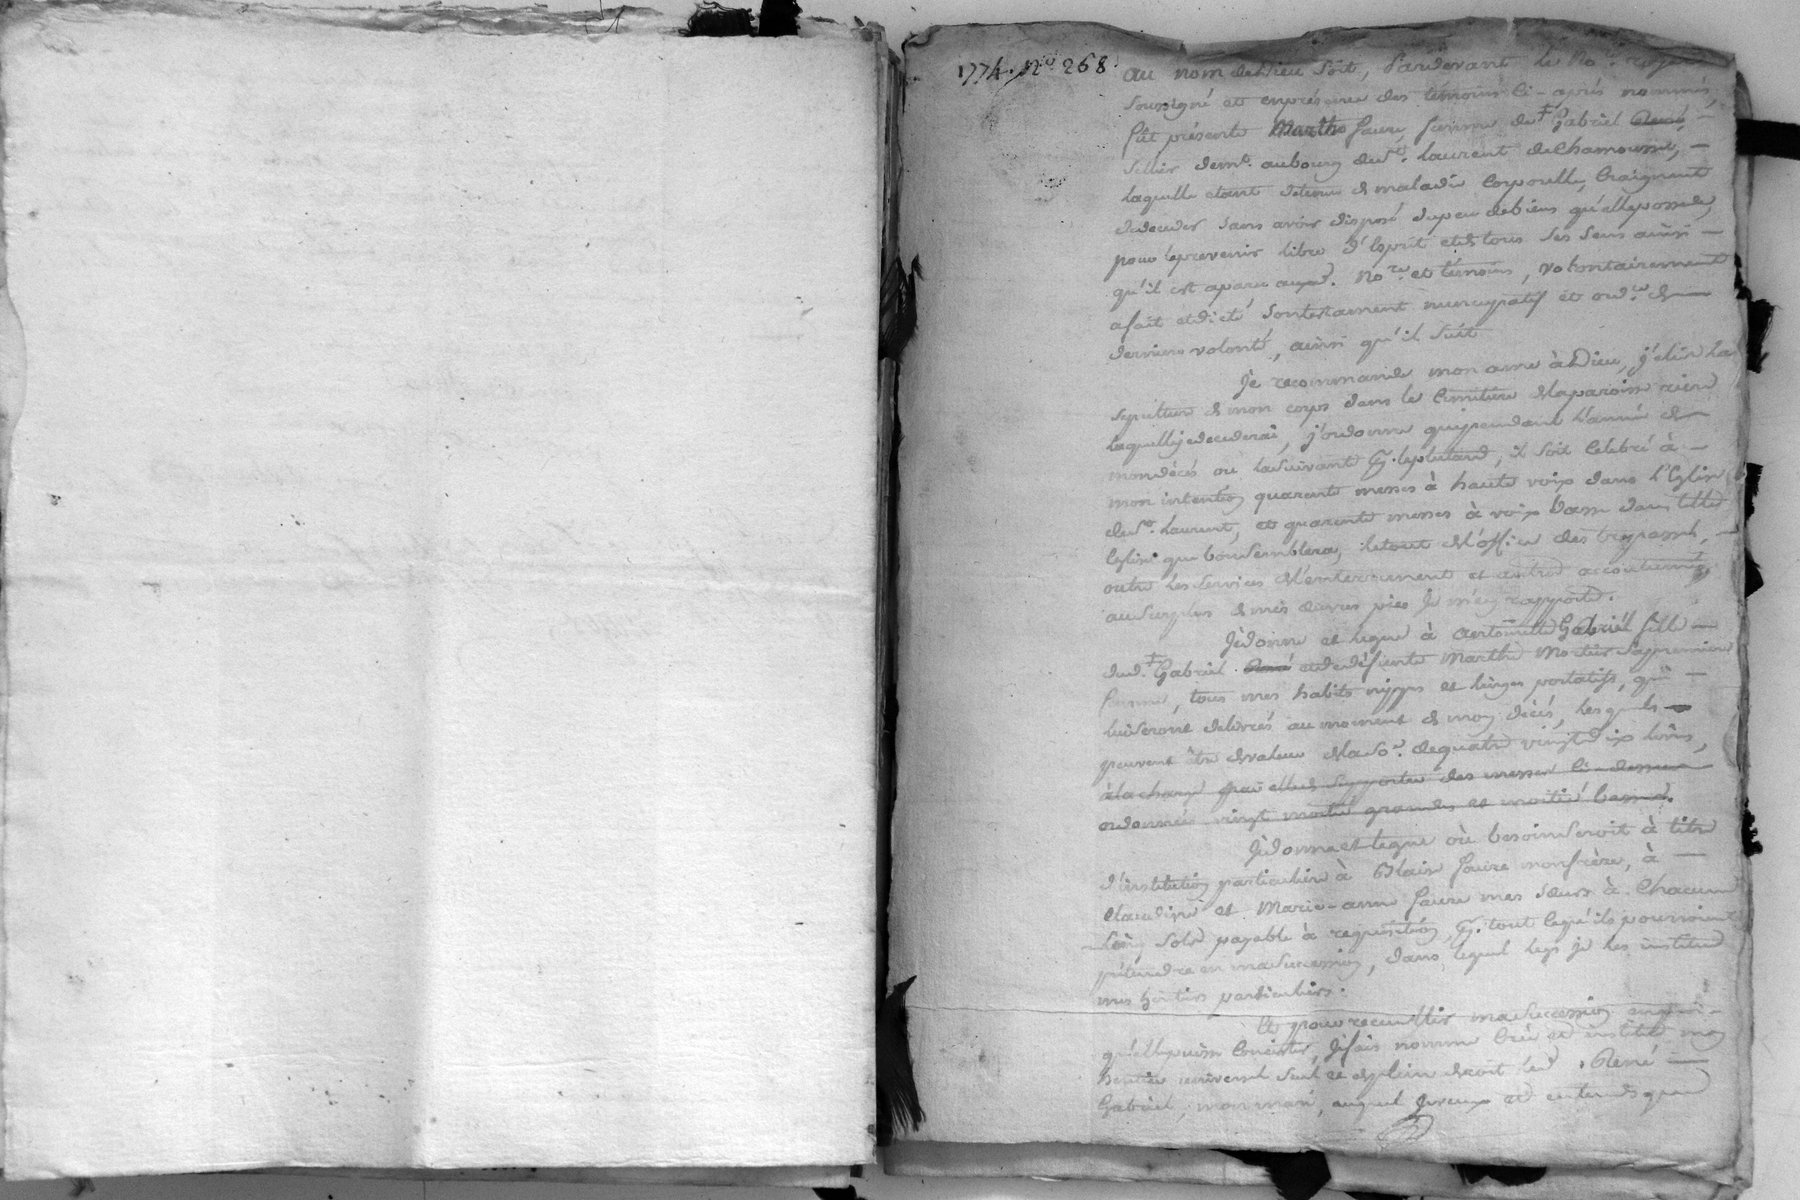 1774. No. 268.
au nom de Dieu soit, Pardevant le No.re royal
soussigné et en présence des témoins ci-après nommés,
fût présente Marthe faure femme de † Gabriel René, —
sellier dem.t au bourg de St. Laurent de Chamousset, —
laquelle étant detenue de maladie corporelle, craignant
de deceder sans avoir disposé du peu de biens qu'elle possede,
pour le prevenir libre d'Esprit et de tous ses sens ainsi —
qu'il est aparu auxd. No.re et témoins, volontairement
a fait et dicté son testament nuncupatif et ord.ce de —
derniere volonté, ainsi qu'il suit
Je recommande mon ame à Dieu, j'elis la
sepulture de mon corps dans le cimitiere de la paroisse riere
laquelle je decederai, j'ordonne que pendant l'année de —
mon décés ou la suivante p. le plutard, il soit celebré à —
mon intention quarente messes à haute voix dans l'Eglise
de St. Laurent, et quarente messes à voix basse dans telle
Eglise que bon semblera, le tout de l'office des trepassés, —
outre les services d'enterrement et autres accoutumés,
au surplus de mes œuvres pies je m'en rapporte.
Je donne et legue à Antoinette Gabriël fille —
dud. † Gabriel René et de défunte Marthe Mortier sa premiere
femme, tous mes habits nippes et linges portatifs, qui —
lui seront delivrés au moment de mon décés, lesquels —
peuvent être de valeur de la so.e de quatre vingt dix livres,
à la charge par elle de supporter des messes ci-dessus
ordonnées vingt moitié grandes et moitié basses.
Je donne et legue où besoin seroit à titre
d'institution particuliere à Blaise faure mon frère, à —
Claudine et Marie-anne faure mes sœurs à chacune
cinq sols payable à requisition, p. tout ce qu'ils pourroient
prétendre en ma succession, dans lequel legs je les institue
mes héritiers particuliers.
Et pour recueillir ma succession en quoi-
qu'elle puisse consister, je fais nomme crée et institue mon
heritier universel seul et de plein droit led. René —
Gabriel, mon mari, auquel je veux et entends que